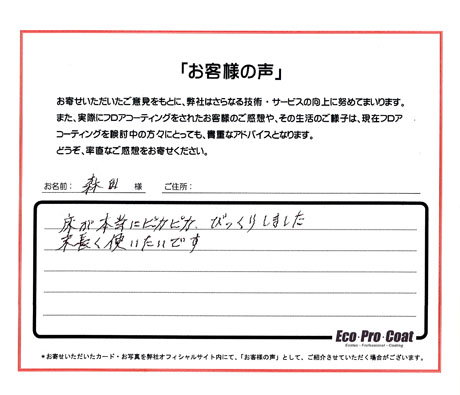 「お客様の声」
お寄せいただいたご意見をもとに、弊社はさらなる技術・サービスの向上に努めてまいります。
また、実際にフロアコーティングをされたお客様のご感想や、その生活のご様子は、現在フロア
コーティングを検討中の方々にとっても、貴重なアドバイスとなります。
どうぞ、率直なご感想をお寄せください。
お名前： 森 様 ご住所：
床が本当にピカピカ、びっくりしました
末長く使いたいです
Eco・Pro・Coat
Ecology・Professional・Coating
＊お寄せいただいたカード・お写真を弊社オフィシャルサイト内にて、「お客様の声」として、ご紹介させていただく場合がございます。